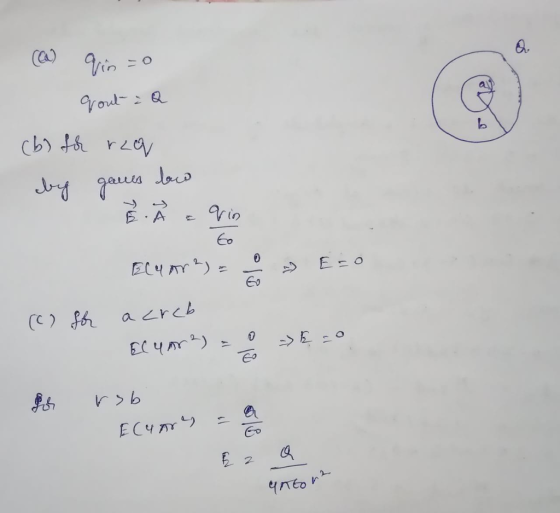 (a) qin = 0
qout = Q
(b) for r < a
by gauss law
E⃗ . A⃗ = qin/ε0
E(4πr²) = 0/ε0 => E = 0
(c) for a < r < b
E(4πr²) = 0/ε0 => E = 0
for r > b
E(4πr²) = Q/ε0
E = Q/4πε0r²
Q
a
b